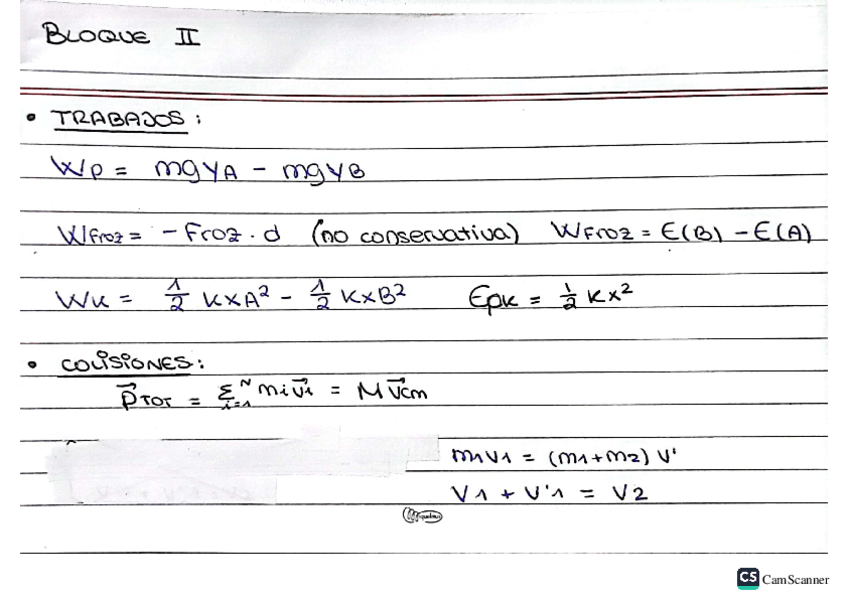 BLOQUE II
• TRABAJOS:
Wp = mgyA - mgyB
WFroz = - Froz · d (no conservativa) WFroz = E(B) - E(A)
Wk = 1/2 KxA² - 1/2 KxB² Epk = 1/2 Kx²
• COLISIONES:
p⃗TOT = Σᵢ₌₁ᴺ mi v⃗i = M v⃗cm
m1v1 = (m1+m2) v'
v1 + v'1 = v2
CS CamScanner